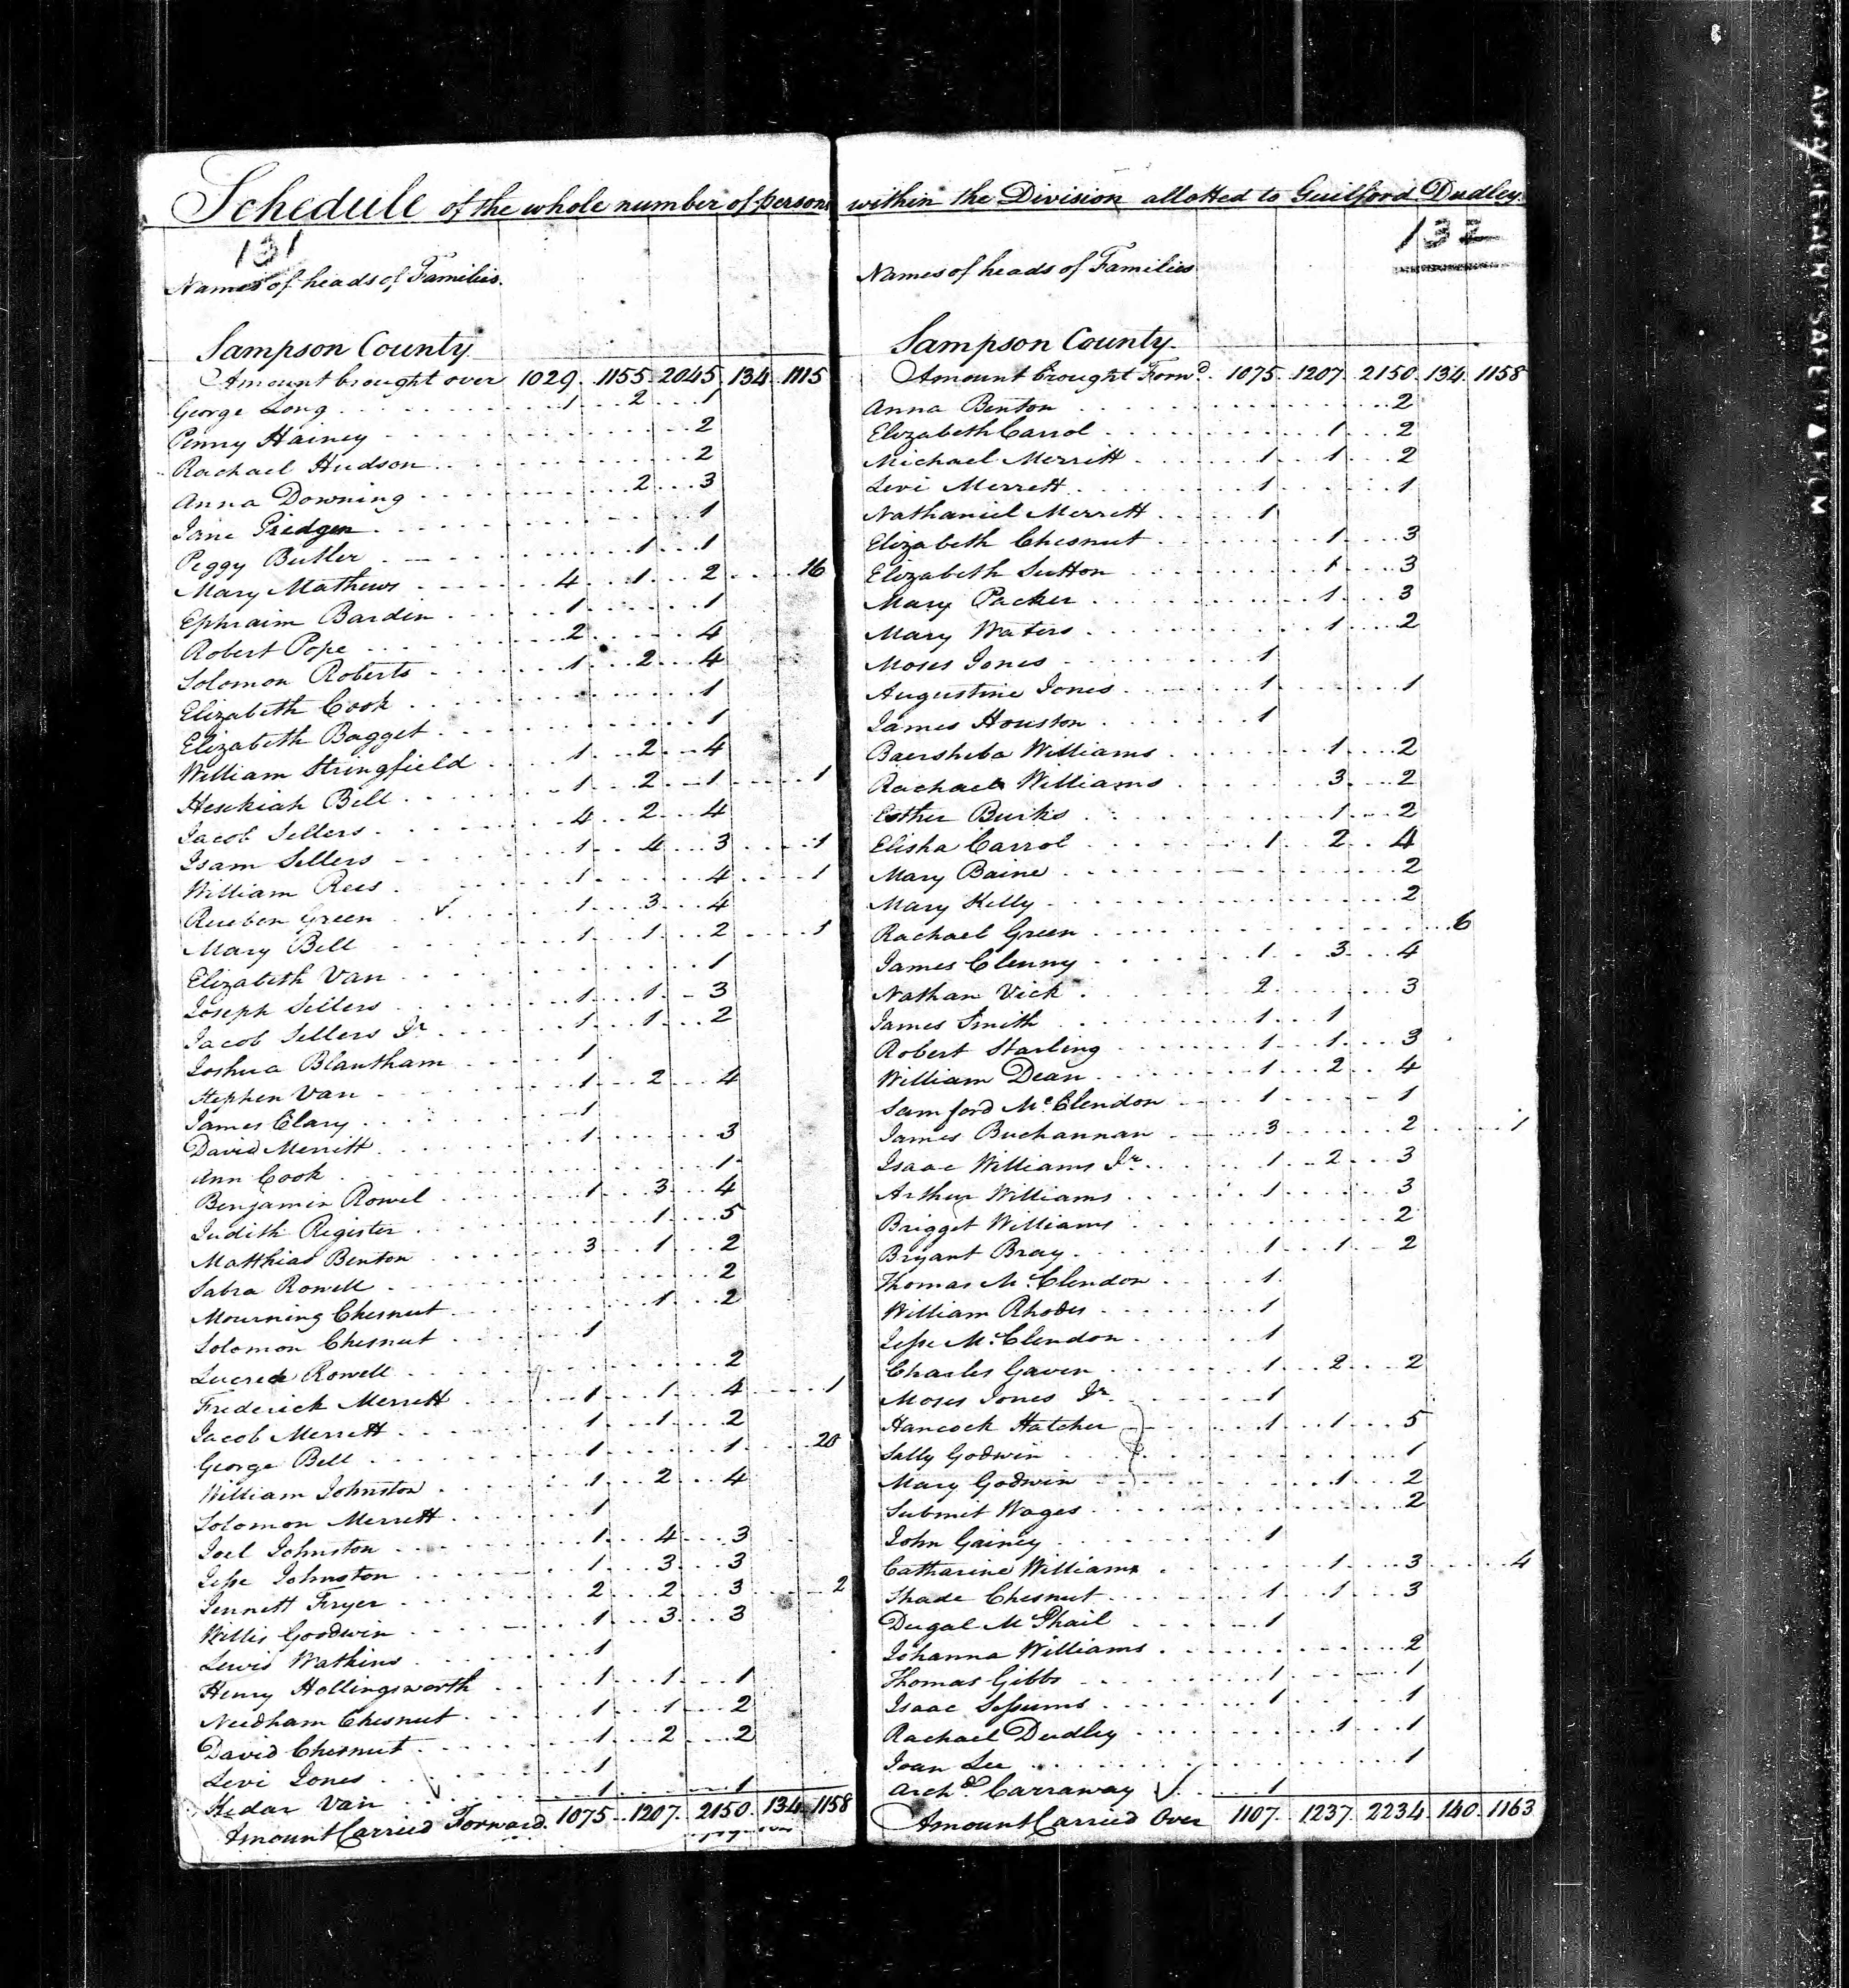 Schedule of the whole number of persons within the Division allotted to Guilford Dudley.
131
Names of heads of Families.
Sampson County
Amount brought over 1029 1155 2045 134 1115
George Long 1 2 1
Penny Hainey 2
Rachael Hudson 2
Anna Downing 2 3
Jane Pridgen 1
Peggy Butler 1 1
Mary Mathews 4 1 2 16
Ephraim Barden 1 1
Robert Pope 2 4
Solomon Roberts 1 2 4
Elizabeth Cook 1
Elizabeth Bagget 1
William Stringfield 1 2 4
Hesekiah Bell 1 2 1 1
Jacob Sellers 4 2 4
Isam Sellers 1 4 3 1
William Rees 1 4 1
Reuben Green 1 3 4
Mary Bell 1 1 2 1
Elizabeth Van 1
Joseph Sellers 1 1 3
Jacob Sellers Jr 1 1 2
Joshua Blantham 1
Stephen Van 1 2 4
James Clary 1
David Merritt 1 3
Ann Cook 1
Benjamin Rowel 1 3 4
Judith Register 1 5
Matthias Benton 3 1 2
Sabra Rowell 2
Mourning Chesnut 1 2
Solomon Chesnut 1
Lucrecle Rowell 2
Frederick Merrett 1 1 4 1
Jacob Merrett 1 1 2
George Bell 1 1 20
William Johnston 1 2 4
Solomon Merrett 1
Joel Johnston 1 4 3
Jesse Johnston 1 3 3
Jennett Fryer 2 2 3 2
Willis Goodwin 1 3 3
Lewis Watkins 1
Henry Hollingsworth 1 1 1
Needham Chesnut 1 1 2
David Chesnut 1 2 2
Levi Jones 1
Kedar Van 1 1
Amount Carried Forward 1075 1207 2150 134 1158
132
Names of heads of Families
Sampson County
Amount brought Forwd. 1075 1207 2150 134 1158
Anna Benton 2
Elizabeth Carrol 1 2
Michael Merritt 1 1 2
Levi Merrett 1 1
Nathaniel Merrett 1
Elizabeth Chesnut 1 3
Elizabeth Sutton 1 3
Mary Packer 1 3
Mary Waters 1 2
Moses Jones 1
Augustine Jones 1 1
James Houston 1
Baersheba Williams 1 2
Rachael Williams 3 2
Esther Burks 1 2
Elisha Carrol 1 2 4
Mary Baine 2
Mary Kelly 2
Rachael Green 6
James Clenny 1 3 4
Nathan Vick 2 3
James Smith 1 1
Robert Starling 1 1 3
William Dean 1 2 4
Samford McClendon 1 1
James Buchannan 3 2 1
Isaac Williams Jr. 1 2 3
Arthur Williams 1 3
Brigget Williams 2
Bryant Bray 1 1 2
Thomas McClendon 1
William Rhodes 1
Jesse McClendon 1
Charles Gaven 1 2 2
Moses Jones Jr 1
Hancock Hatcher 1 1 5
Sally Godwin 1
Mary Godwin 1 2
Submit Wages 2
John Gainey 1
Catharine Williams 1 3 4
Thade Chesnut 1 1 3
Dugal McPhail 1
Johanna Williams 2
Thomas Gibbs 1 1
Isaac Sessums 1 1
Rachael Dudley 1 1
Joan Lee 1
Archd. Carraway 1
Amount Carried Over 1107 1237 2234 140 1163